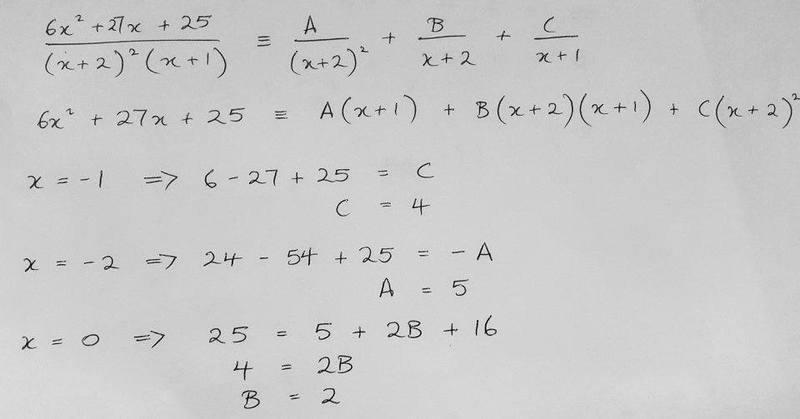 (6x² + 27x + 25)/((x+2)²(x+1)) ≡ A/(x+2)² + B/(x+2) + C/(x+1)
6x² + 27x + 25 ≡ A(x+1) + B(x+2)(x+1) + C(x+2)²
x = -1 ⇒ 6 - 27 + 25 = C
C = 4
x = -2 ⇒ 24 - 54 + 25 = - A
A = 5
x = 0 ⇒ 25 = 5 + 2B + 16
4 = 2B
B = 2